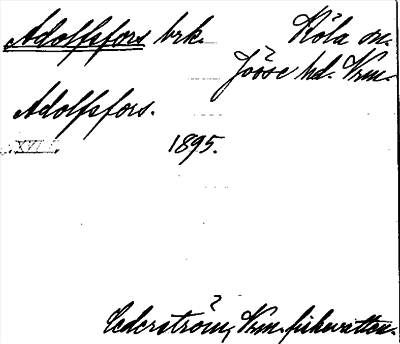 Adolfsfors brk. Köla sn.
Jösse hd. Vrm.
Adolfsfors.
XVI
1895.
Cederström, Vrm. fiskevatten.